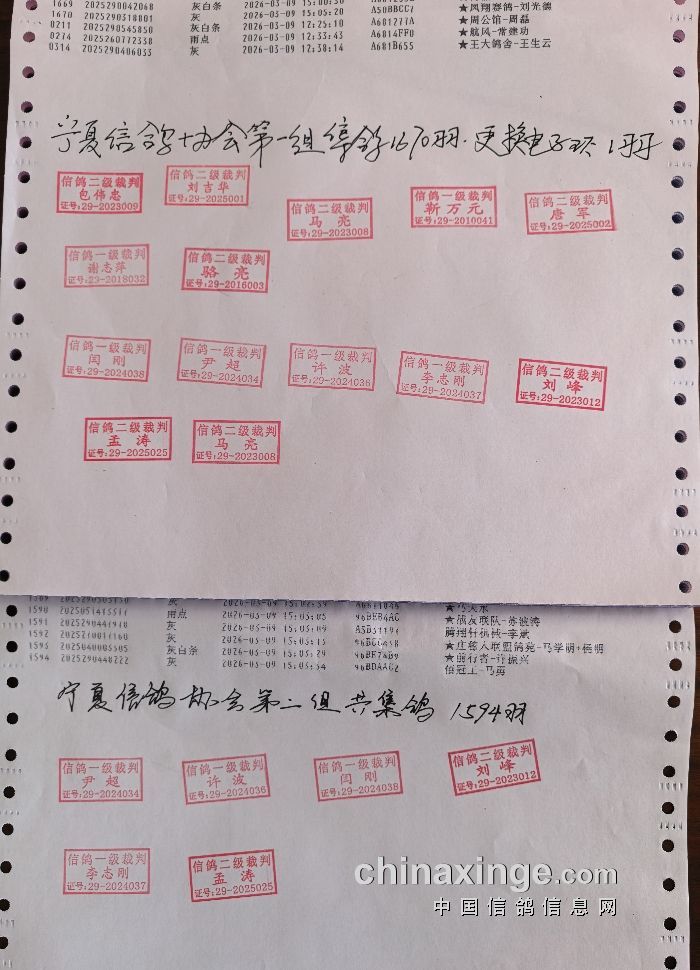 1669 2025290042068 灰白条 2026-03-09 15:00:30 ★凤翔蓉鸽-刘光德
1670 2025290318001 灰 2026-03-09 15:05:20 A50BBCC7 ★周公馆-周磊
0211 2025290545850 灰白条 2026-03-09 12:25:10 A681277A ★航风-常建功
0274 2025260772338 雨点 2026-03-09 12:33:43 A6814FF0
0314 2025290406033 灰 2026-03-09 12:38:14 A681B655 ★王大鸽舍-王生云
宁夏信鸽协会第一组集鸽1670羽.更换电子环1羽
信鸽二级裁判 包伟忠 证号:29-2023009
信鸽二级裁判 刘吉华 证号:29-2025001
信鸽二级裁判 马亮 证号:29-2023008
信鸽一级裁判 靳万元 证号:29-2010041
信鸽二级裁判 唐军 证号:29-2025002
信鸽一级裁判 谢志萍 证号:29-2018032
信鸽二级裁判 骆亮 证号:29-2016003
信鸽一级裁判 闫刚 证号:29-2024038
信鸽一级裁判 尹超 证号:29-2024034
信鸽一级裁判 许波 证号:29-2024036
信鸽一级裁判 李志刚 证号:29-2024037
信鸽二级裁判 刘峰 证号:29-2023012
信鸽二级裁判 孟涛 证号:29-2025025
信鸽二级裁判 马亮 证号:29-2023008
灰
1590 雨点 2026-03-09 15:03:05 96BEB4AC
1591 2025290441918 灰 2026-03-09
灰 2026-03-09
1595 灰白条 2026-03-09
1594 2025290448222 灰 2026-03-09 96BDAAC2
宁夏信鸽协会第二组共集鸽 1594羽
信鸽一级裁判 尹超 证号:29-2024034
信鸽一级裁判 许波 证号:29-2024036
信鸽一级裁判 闫刚 证号:29-2024038
信鸽二级裁判 刘峰 证号:29-2023012
信鸽一级裁判 李志刚 证号:29-2024037
信鸽二级裁判 孟涛 证号:29-2025025
chinaxinge.com
中国信鸽信息网